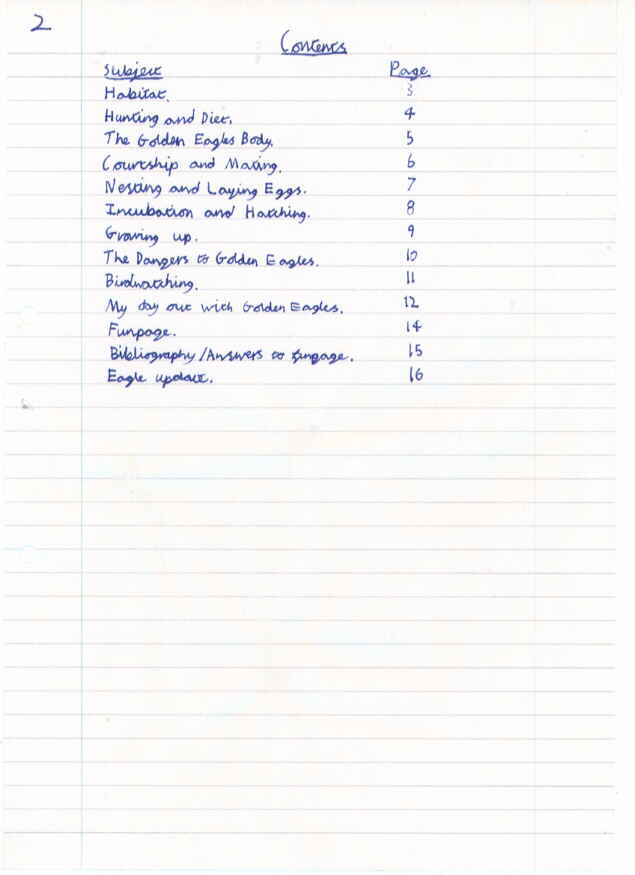 2
Contents
Subject Page
Habitat. 3
Hunting and Diet. 4
The Golden Eagles Body. 5
Courtship and Mating. 6
Nesting and Laying Eggs. 7
Incubation and Hatching. 8
Growing up. 9
The Dangers to Golden Eagles. 10
Birdwatching. 11
My day out with Golden Eagles. 12
Funpage. 14
Bibliography/Answers to funpage. 15
Eagle update. 16